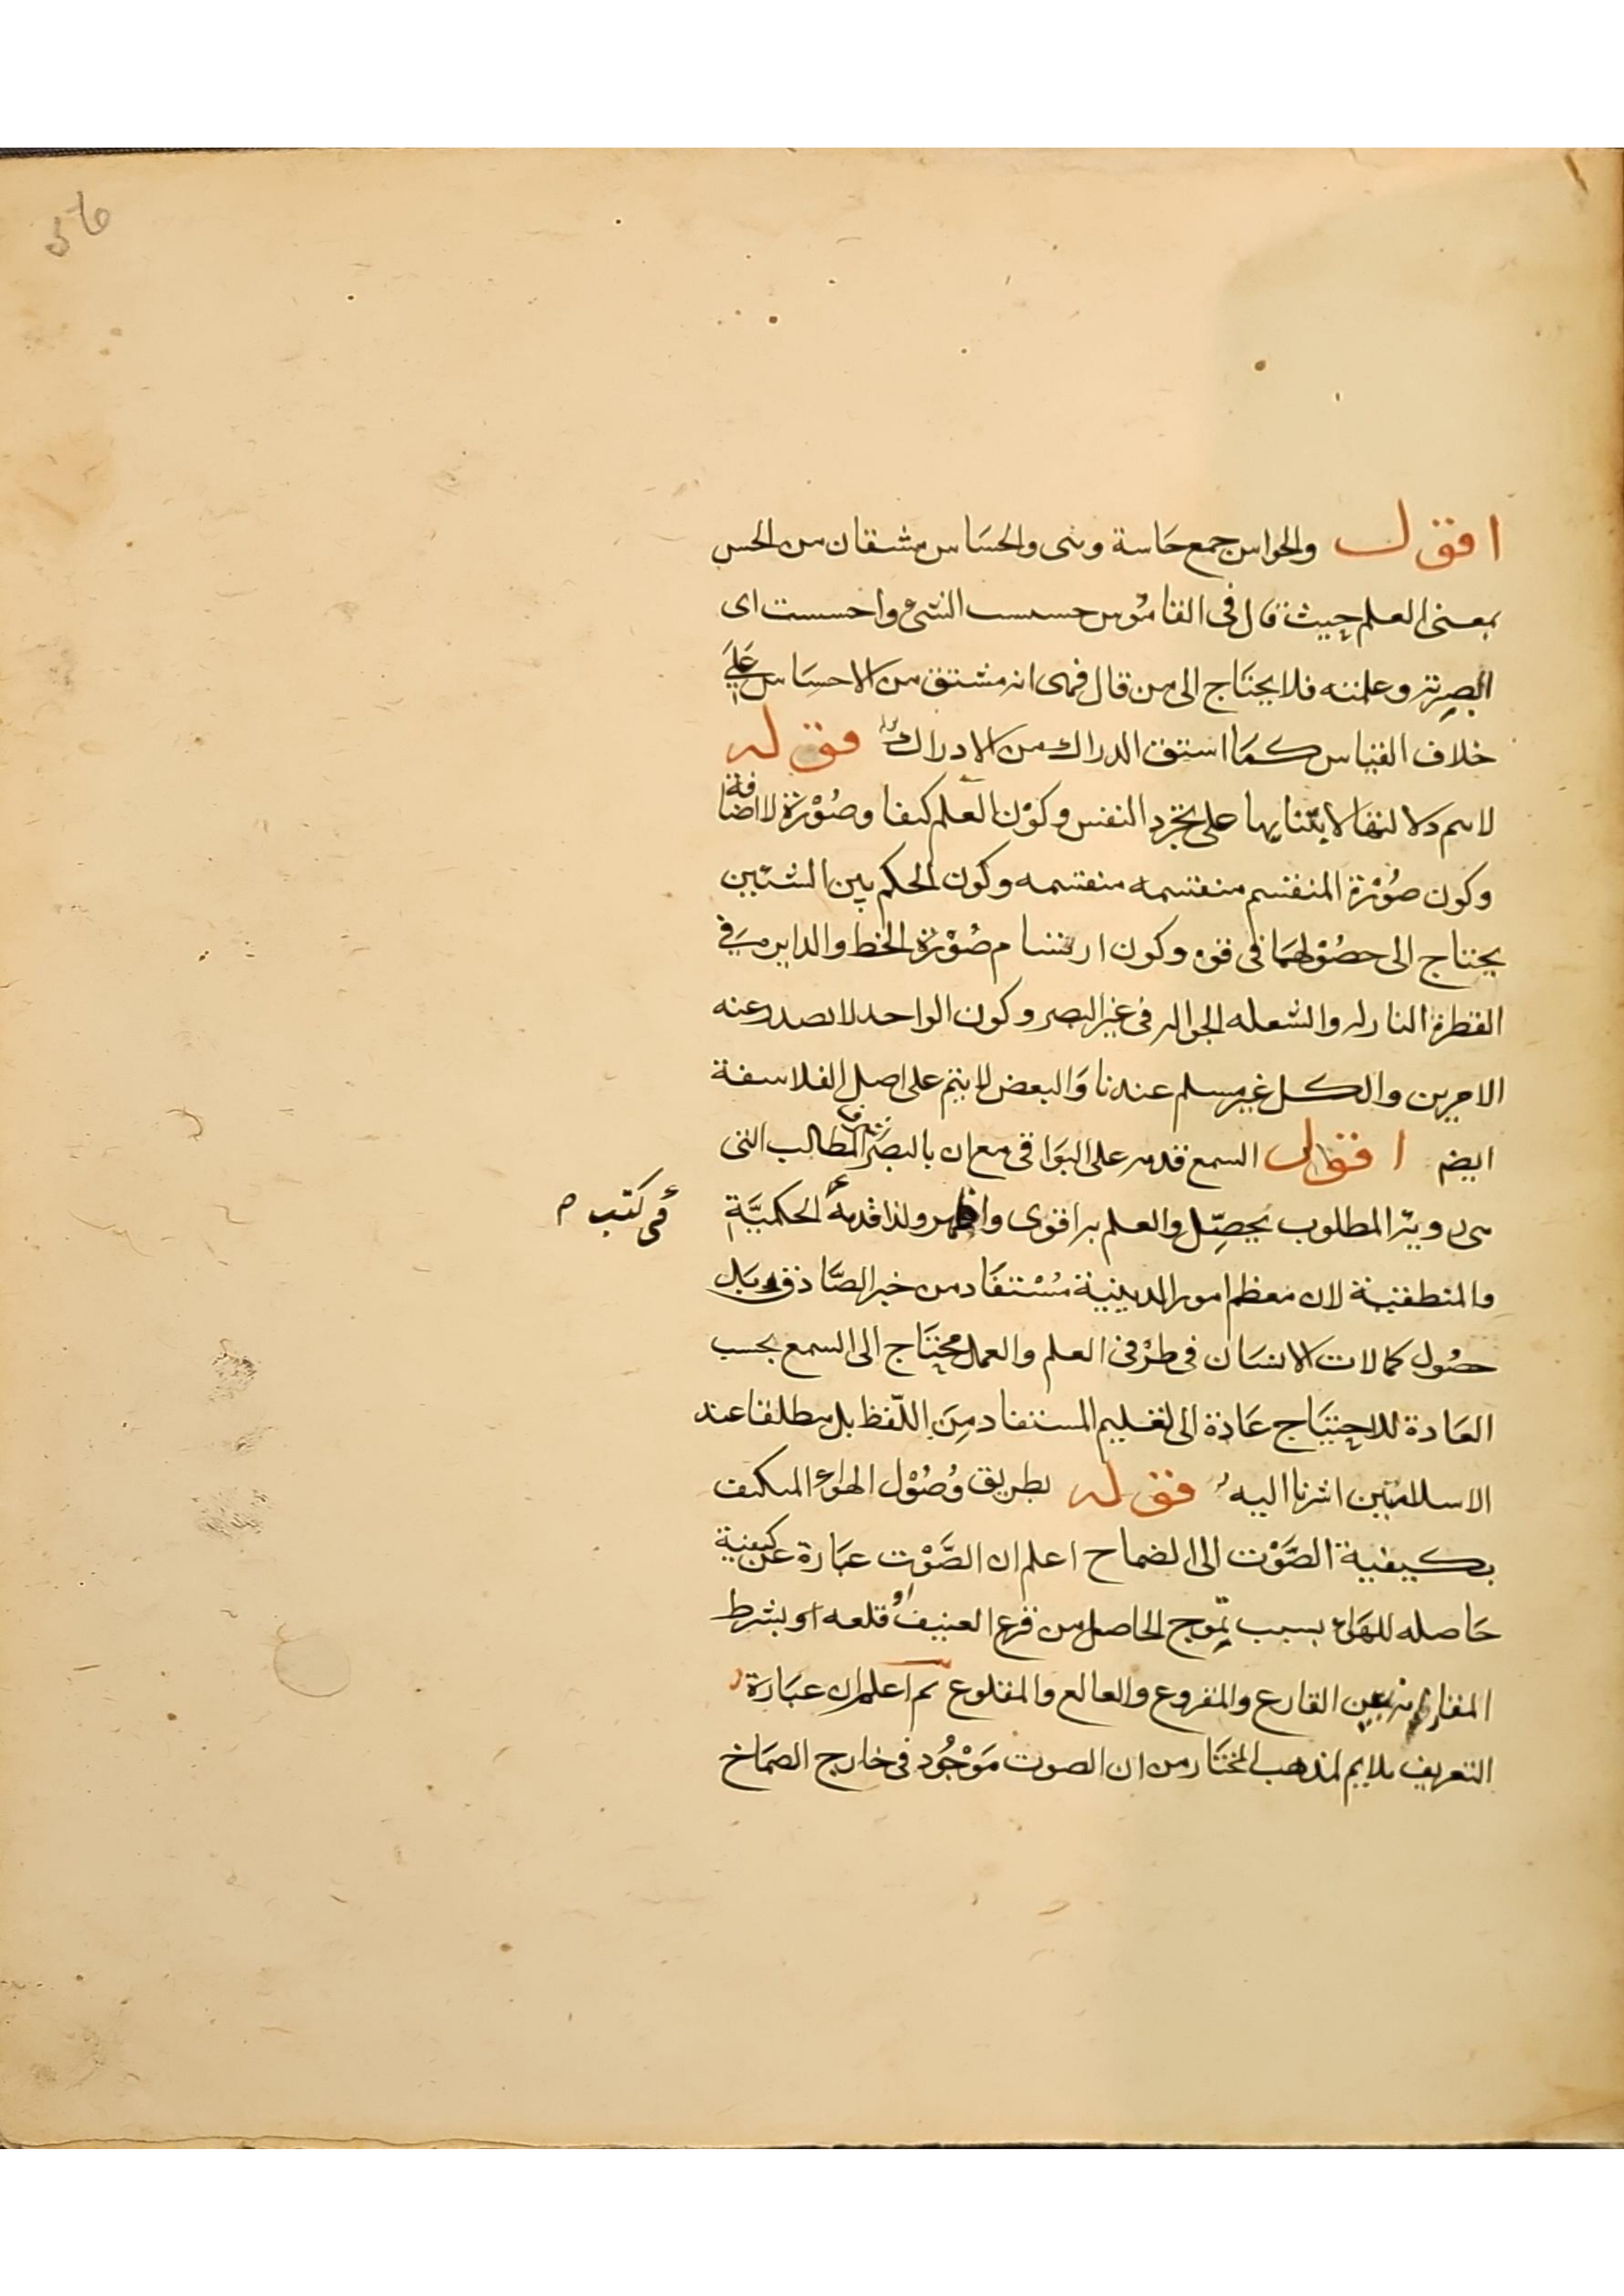 56
اقول والحواس جمع حاسة وهى والحساس مشقان من الحس
بمعنى العلم حيث قال فى القاموس حسست الشىء واحسست اى
البصرته وعلمته فلا يحتاج الى من قال انه مشتق من الاحساس على
خلاف القياس كما اشتق الدراك من الادراك قوله
لا يتم دلائلها لابتنايها على تجرد النفس وكون العلم كيفا وصورة لا اضافة
وكون صورة المنقسم منقسمه منقسمه وكون الحكم بين الشئين
يحتاج الى حصولهما فى قوه وكون ارتسام صورة الخط والدايره فى
القطرة النازله والشعله الجواله فى غير البصر وكون الواحد لا يصدر عنه
الامرين والكل غير مسلم عندنا والبعض لا يتم على اصل الفلاسفة
ايضم اقول السمع قدمه على البواقى مع ان بالبصر المطالب التى
هى روية المطلوب يحصل والعلم به اقوى واظهر ولذا قدمه الحكمية
فى كتب م
والمنطقية لان معظم امور الدينية مستفاد من خبر الصادق بل
حصول كمالات الانسان فى طرفى العلم والعمل محتاج الى السمع بحسب
العادة للاحتياج عادة الى تعليم المستفاد من اللفظ بل مطلقا عند
الاسلاميين اشرنا اليه قوله بطريق وصول الهواء المكيف
بكيفية الصوت الى الضماح اعلم ان الصوت عبارة عن كيفية
حاصله للهواء بسبب تموج الحاصل من قرع العنيف او قلعه او بشرط
القارع والمقروع والقالع والمقلوع ثم اعلم ان عبارة
التعريف ملايم لمذهب المختار من ان الصوت موجود فى خارج الصماخ